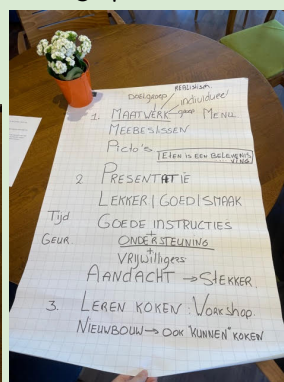 Doelgroep REALISTISCH
individueel
1. MAATWERK groep MENU
MEEBESLISSEN
Picto's ETEN IS EEN BELEVENIS
2 PRESENTATIE
LEKKER | GOED | SMAAK
Tijd GOEDE INSTRUCTIES
GEUR. ONDERSTEUNING
+
VRIJWILLIGERS
AANDACHT → STEKKER.
3. LEREN KOKEN: WORKSHOP.
NIEUWBOUW → OOK "KUNNEN" KOKEN